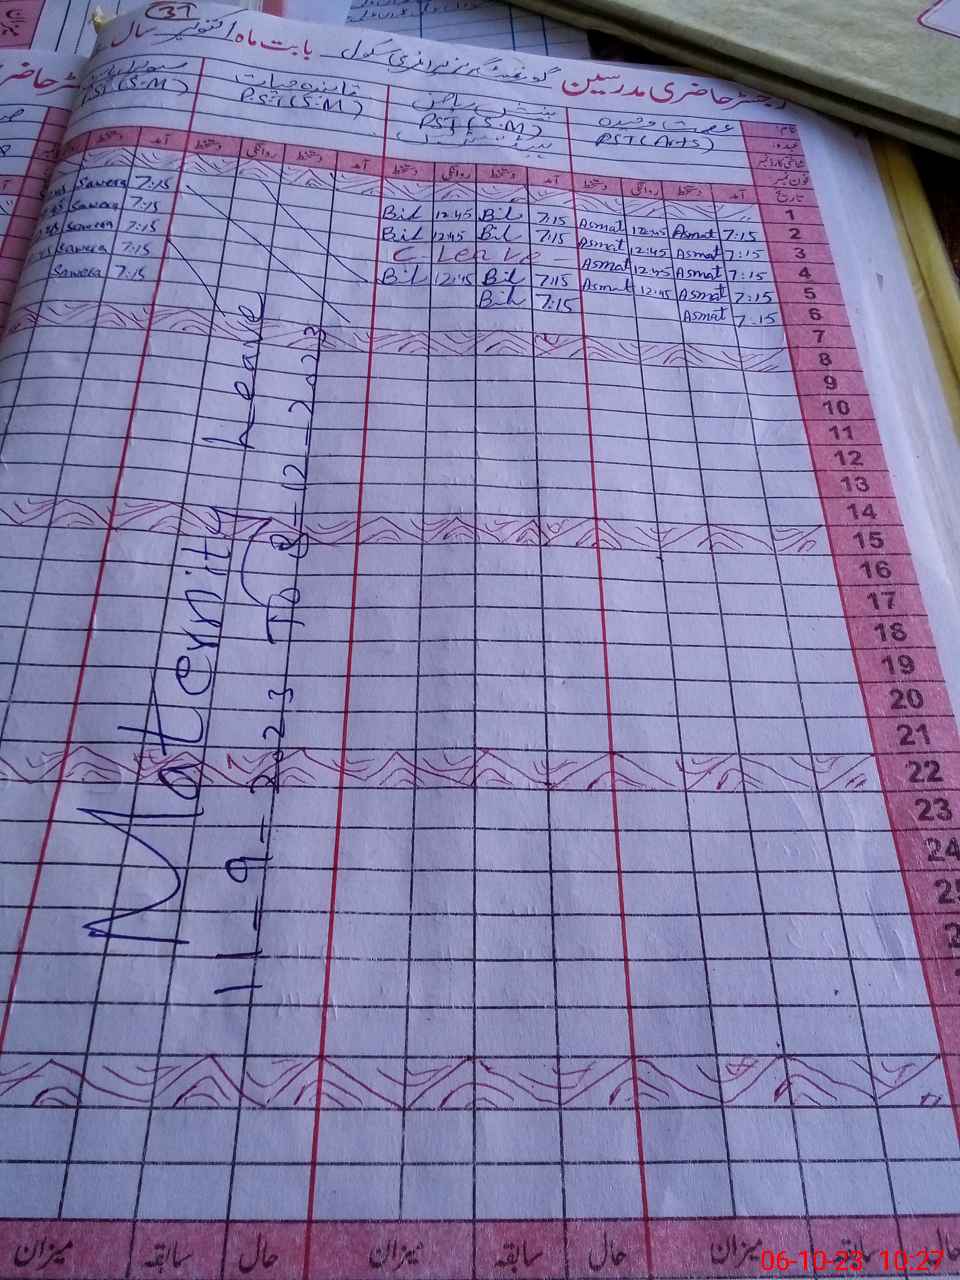 37
رجسٹر حاضری مدرسین گورنمنٹ گرلز پرائمری سکول بابت ماہ اکتوبر سال
PST (Arts)
PST (S.M)
PST (S.M)
PST (S.M)
نام
عہدہ
تاریخ
آمد دستخط روانگی دستخط آمد دستخط روانگی دستخط آمد دستخط روانگی دستخط آمد
1
2 7:15 Asmat 12:45 Asmat 7:15 Bil 12:45 Bil 7:15 Sawera
3 7:15 Asmat 12:45 Asmat 7:15 Bil 12:45 Bil 7:15 Sawera
4 7:15 Asmat 12:45 Asmat C. Leave 7:15 Sawera
5 7:15 Asmat 12:45 Asmat 7:15 Bil 12:45 Bil 7:15 Sawera
6 7:15 Asmat 7:15 Bil 7:15 Sawera
7
8
9
10
11
12
13
14
15
16
17
18
19
20
21
22
23
24
Maternity Leave
11-9-2023 To 8-12-2023
میزان سابقہ حال میزان سابقہ حال میزان سابقہ حال
06-10-23 10:27